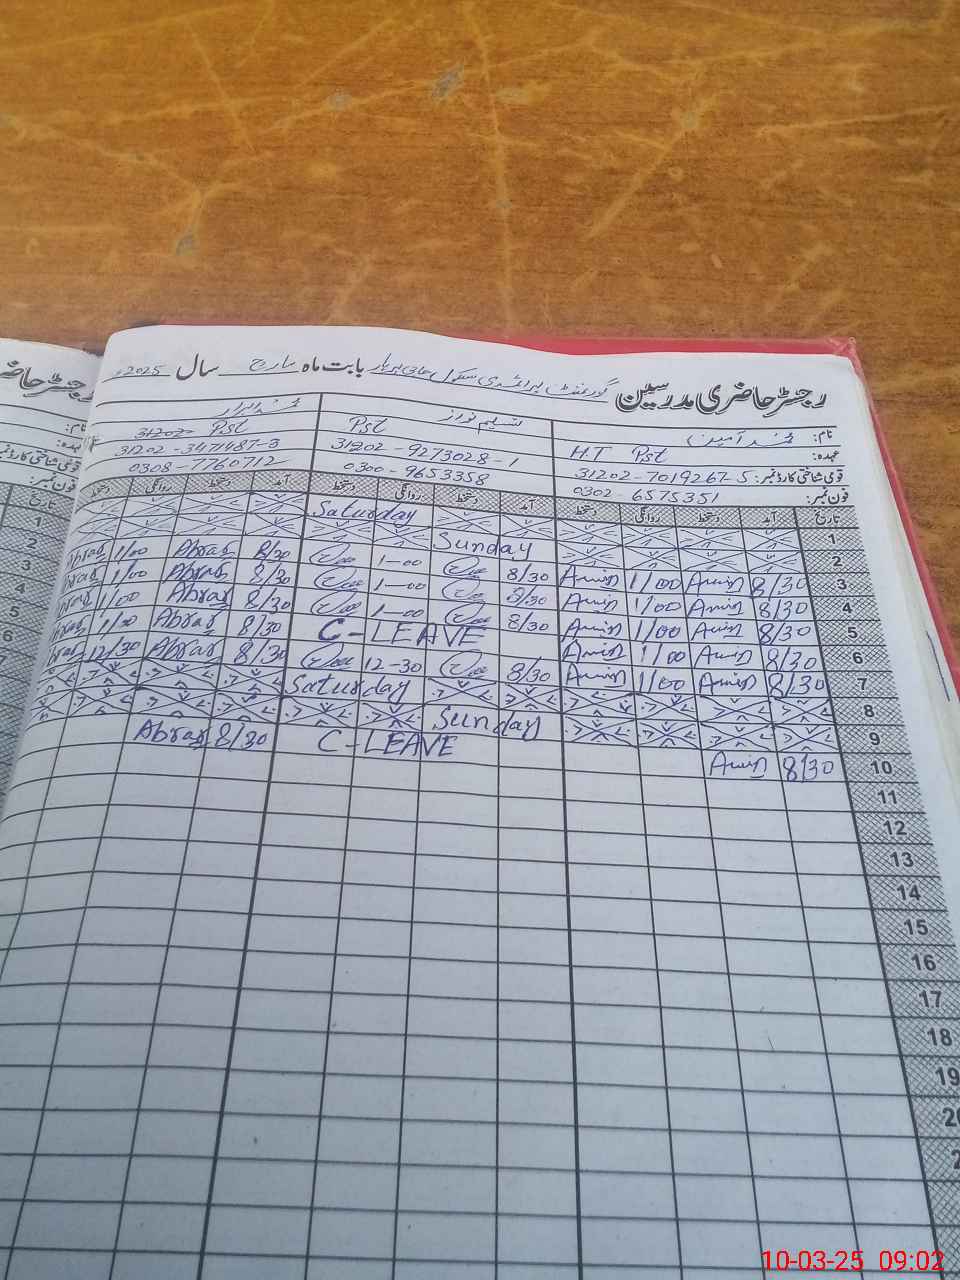 رجسٹر حاضری مدرسین گورنمنٹ پرائمری سکول بابت ماہ مارچ سال 2025ء
نام: محمد آمین تسلیم نواز محمد ابرار
عہدہ: H.T Pst Pst Pst
قومی شناختی کارڈ نمبر: 31202-7019267-5 31202-9273028-1 31202 31202-3471487-3
فون نمبر: 0302-6575351 0300-9653358 0308-7760712
تاریخ آمد دستخط روانگی دستخط آمد دستخط روانگی دستخط آمد دستخط روانگی دستخط
1 Saturday
2 Sunday
3 8/30 Amin 1/00 Amin 8/30 1-00 8/30 Abrar 1/00 Abrar
4 8/30 Amin 1/00 Amin 8/30 1-00 8/30 Abrar 1/00 Abrar
5 8/30 Amin 1/00 Amin 8/30 1-00 8/30 Abrar 1/00 Abrar
6 8/30 Amin 1/00 Amin C-LEAVE 8/30 Abrar 1/00 Abrar
7 8/30 Amin 1/00 Amin 8/30 12-30 8/30 Abrar 12/30 Abrar
8 Saturday
9 Sunday
10 8/30 Amin C-LEAVE 8/30 Abrar
11
12
13
14
15
16
17
18
19
20
رجسٹر حاضر
نام:
عہدہ:
قومی شناختی کارڈ نمبر
فون نمبر:
تاریخ
1
2
3
4
5
6
10-03-25 09:02